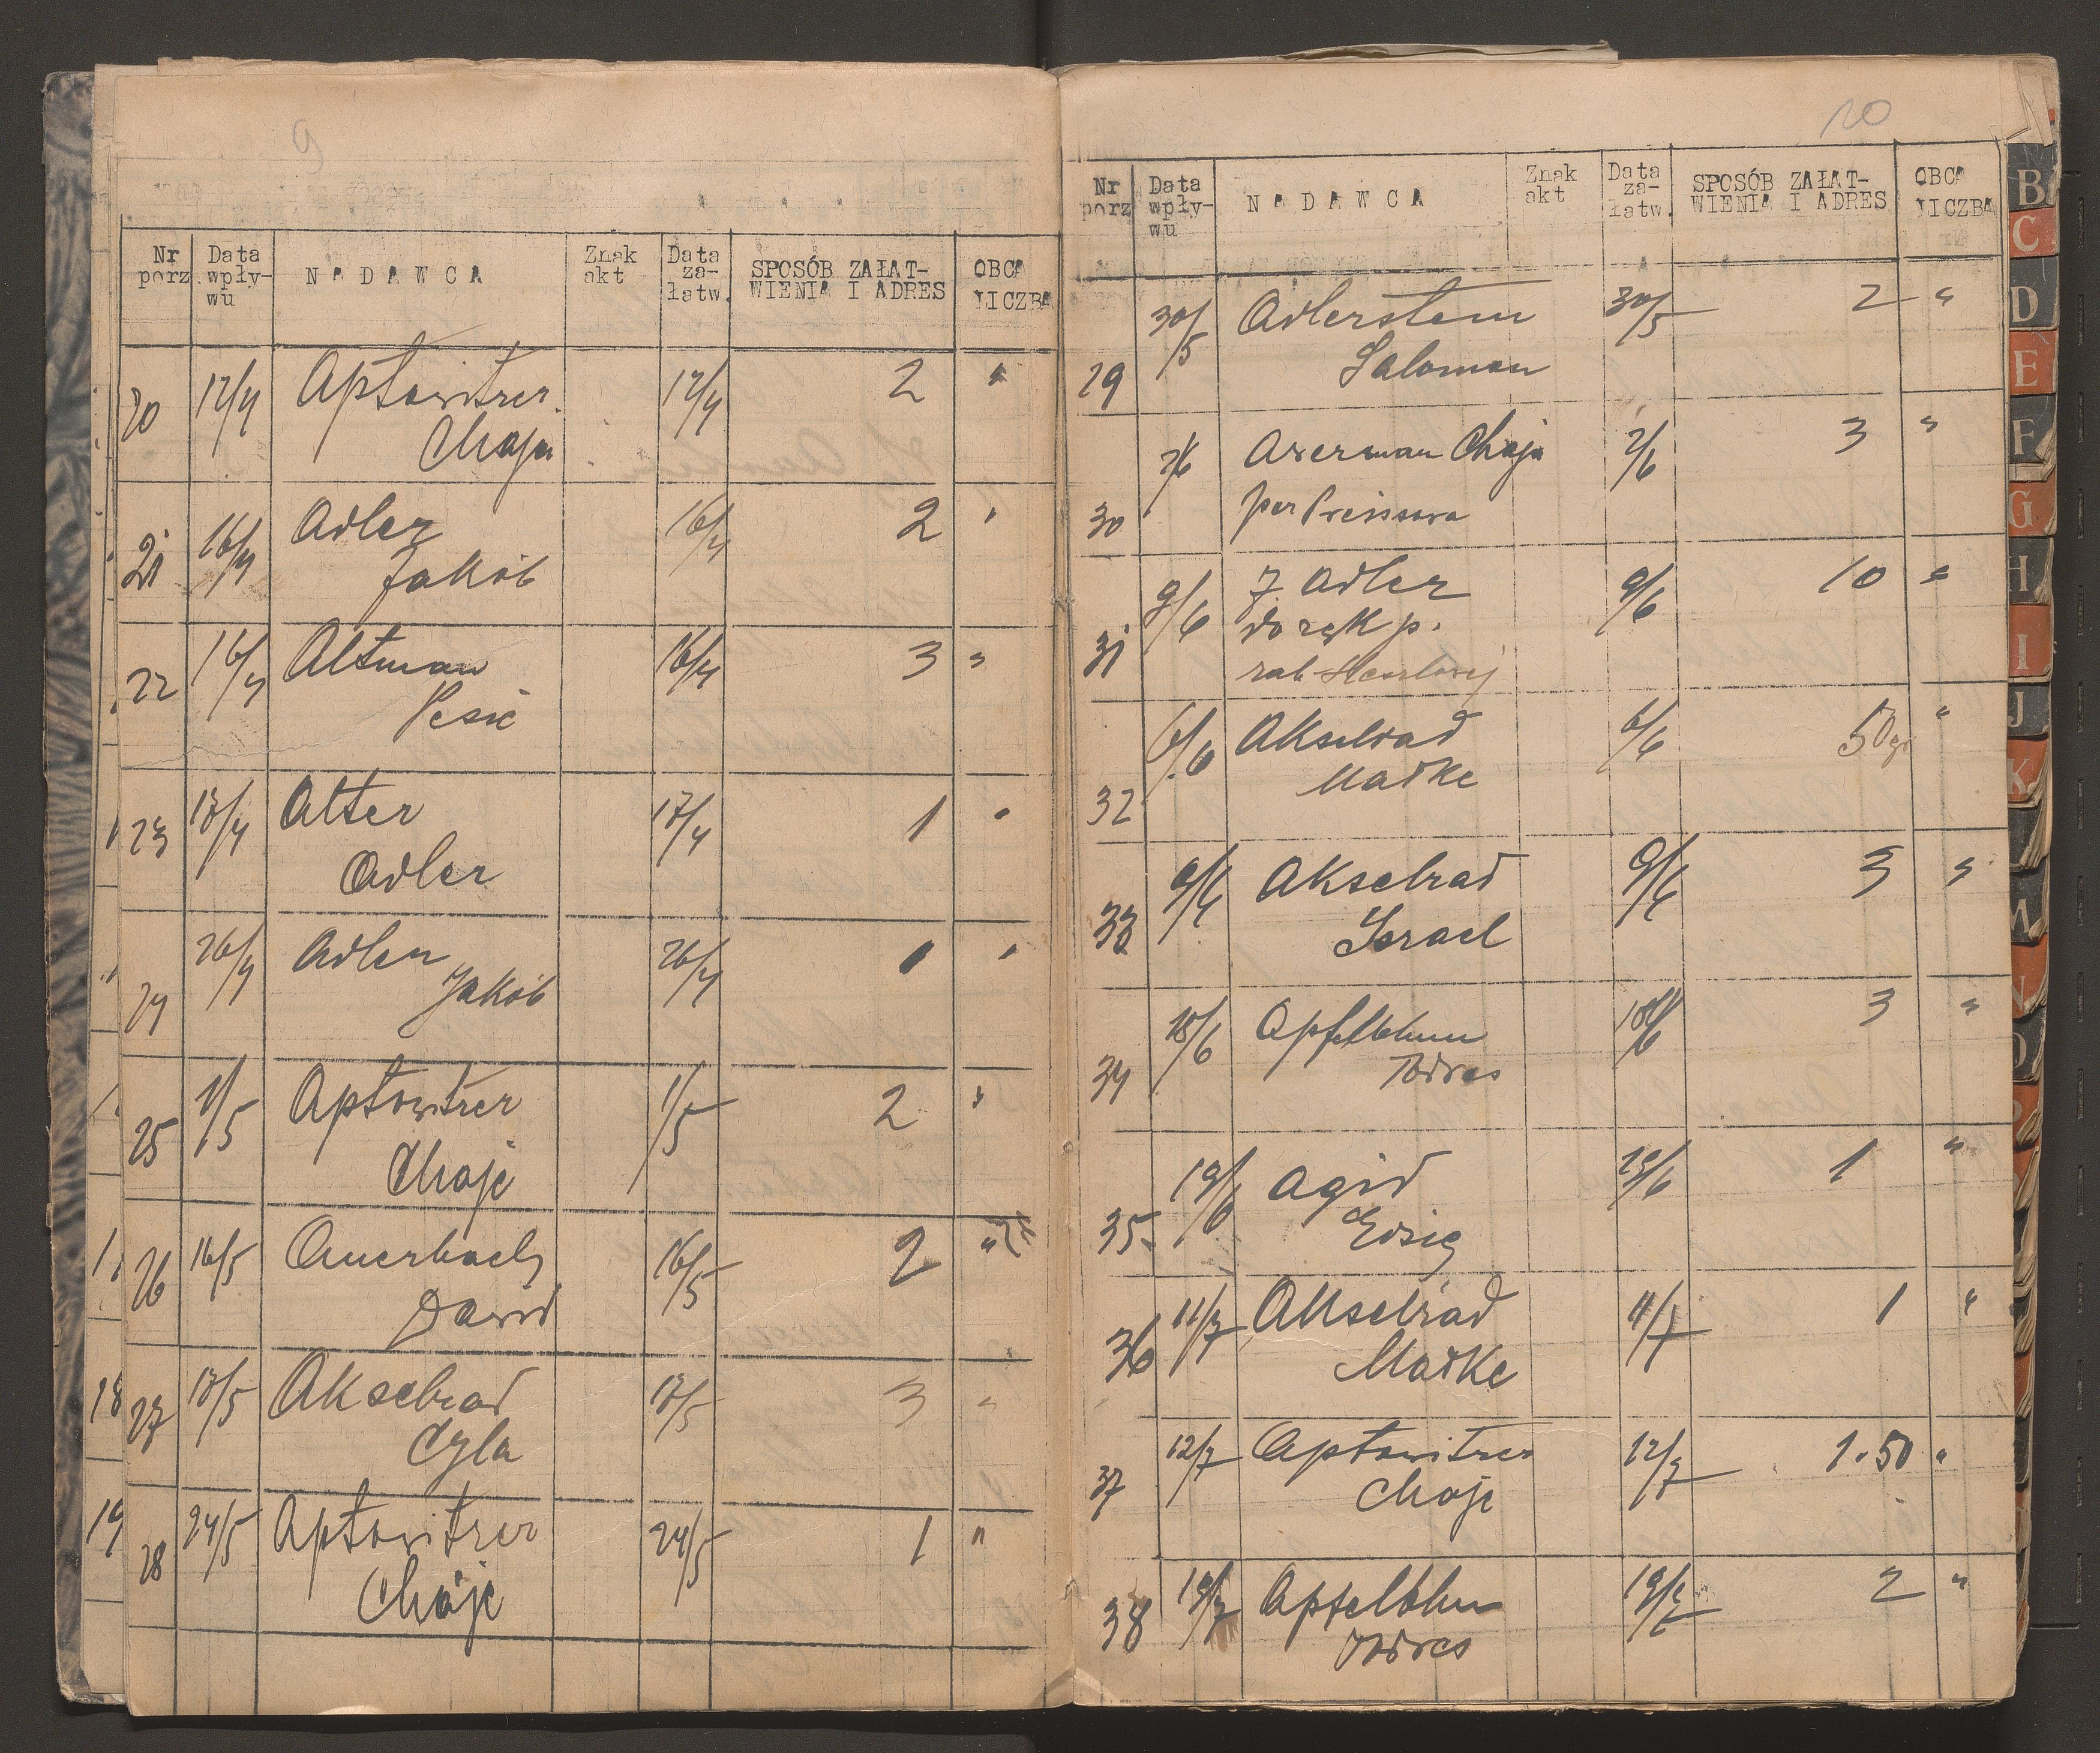 9
Nr porz. Data wpły-wu NADAWCA Znak akt Data za-łatw. SPOSÓB ZAŁAT-WIENIA I ADRES OBCA LICZBA
20 12/4 Aptowitzer 12/4 2 "
Chaja
21 16/4 Adler 16/4 2 "
Jakób
22 16/4 Altman 16/4 3 "
Pesie
23 17/4 Alter 17/4 1 "
Adler
24 26/4 Adler 26/4 1 "
Jakób
25 1/5 Aptowitzer 1/5 2 "
Chaje
26 16/5 Auerbach 16/5 2 "
Dawid
27 17/5 Akselrad 17/5 3 "
Cyla
28 24/5 Aptowitzer 24/5 1 "
Chaje
18
19
10
Nr porz Data wpły-wu NADAWCA Znak akt Data za-łatw. SPOSÓB ZAŁAT-WIENIA I ADRES OBCA LICZBA
29 30/5 Adlerstein 30/5 2 "
Saloman
30 2/6 Axerman Chaja 2/6 3 "
per
31 9/6 7 Adler 9/6 10 "
do rąk p.
rab
32 6/6 Akselrad 6/6 50 gr "
Madke
33 9/6 Akselrad 9/6 3 "
Israel
34 18/6 Apfelblum 18/6 3 "
35 19/6 Agid 19/6 1 "
Eisig
36 11/7 Akselrad 11/7 1 "
Madke
37 12/7 Aptowitzer 12/7 1.50 "
Chaje
38 19/7 2 "
B
C
D
E
F
G
H
I
J
K
M
N
O